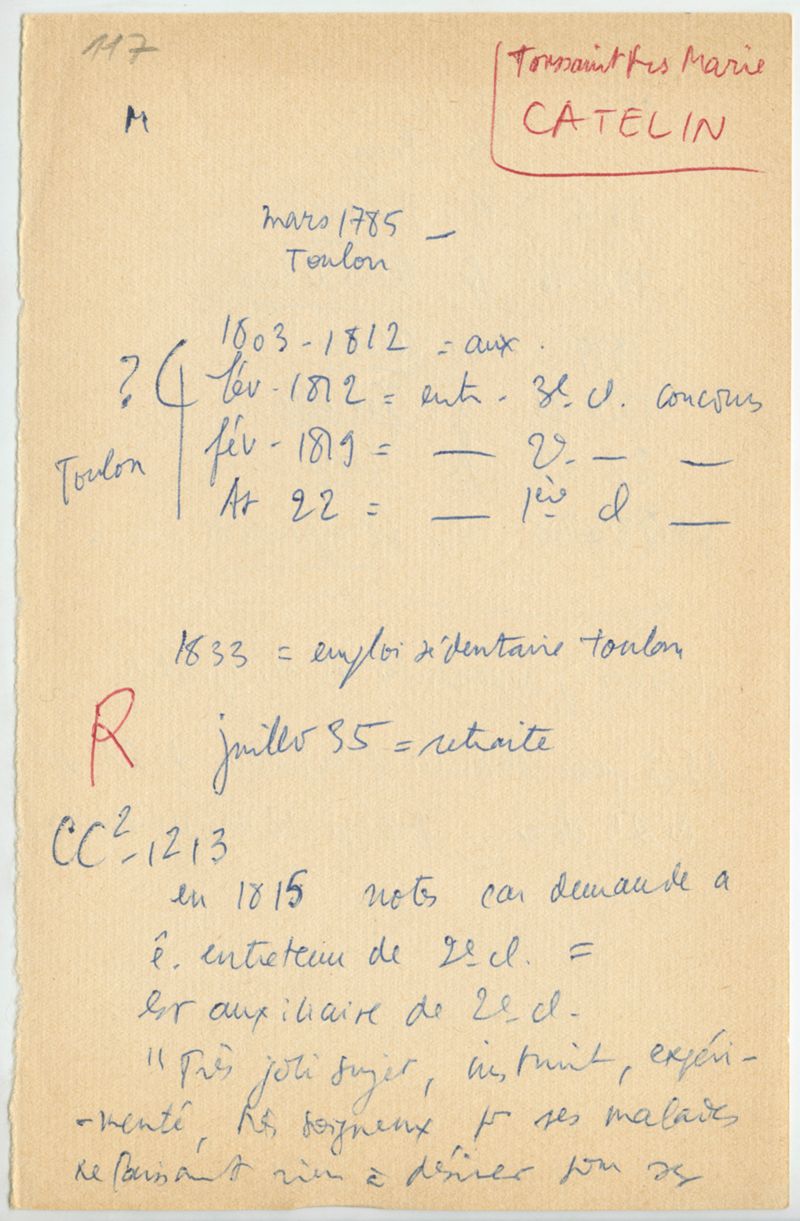 117
M
Toussaint Frs Marie
CATELIN
mars 1785 —
Toulon
1803 - 1812 = aux.
? fév - 1812 = entr - 3e cl. concours
Toulon
fév - 1819 = — 2e — —
At 22 = — 1ère cl —
1833 = emploi sédentaire Toulon
R
juillet 35 = retraite
CC2 - 1213
en 1815 notes car demande a
ê. entretenu de 2e cl. =
Est auxiliaire de 2e cl.
"Très joli sujet, instruit, expéri-
-menté, très soigneux pr ses malades
ne laissant rien à désirer